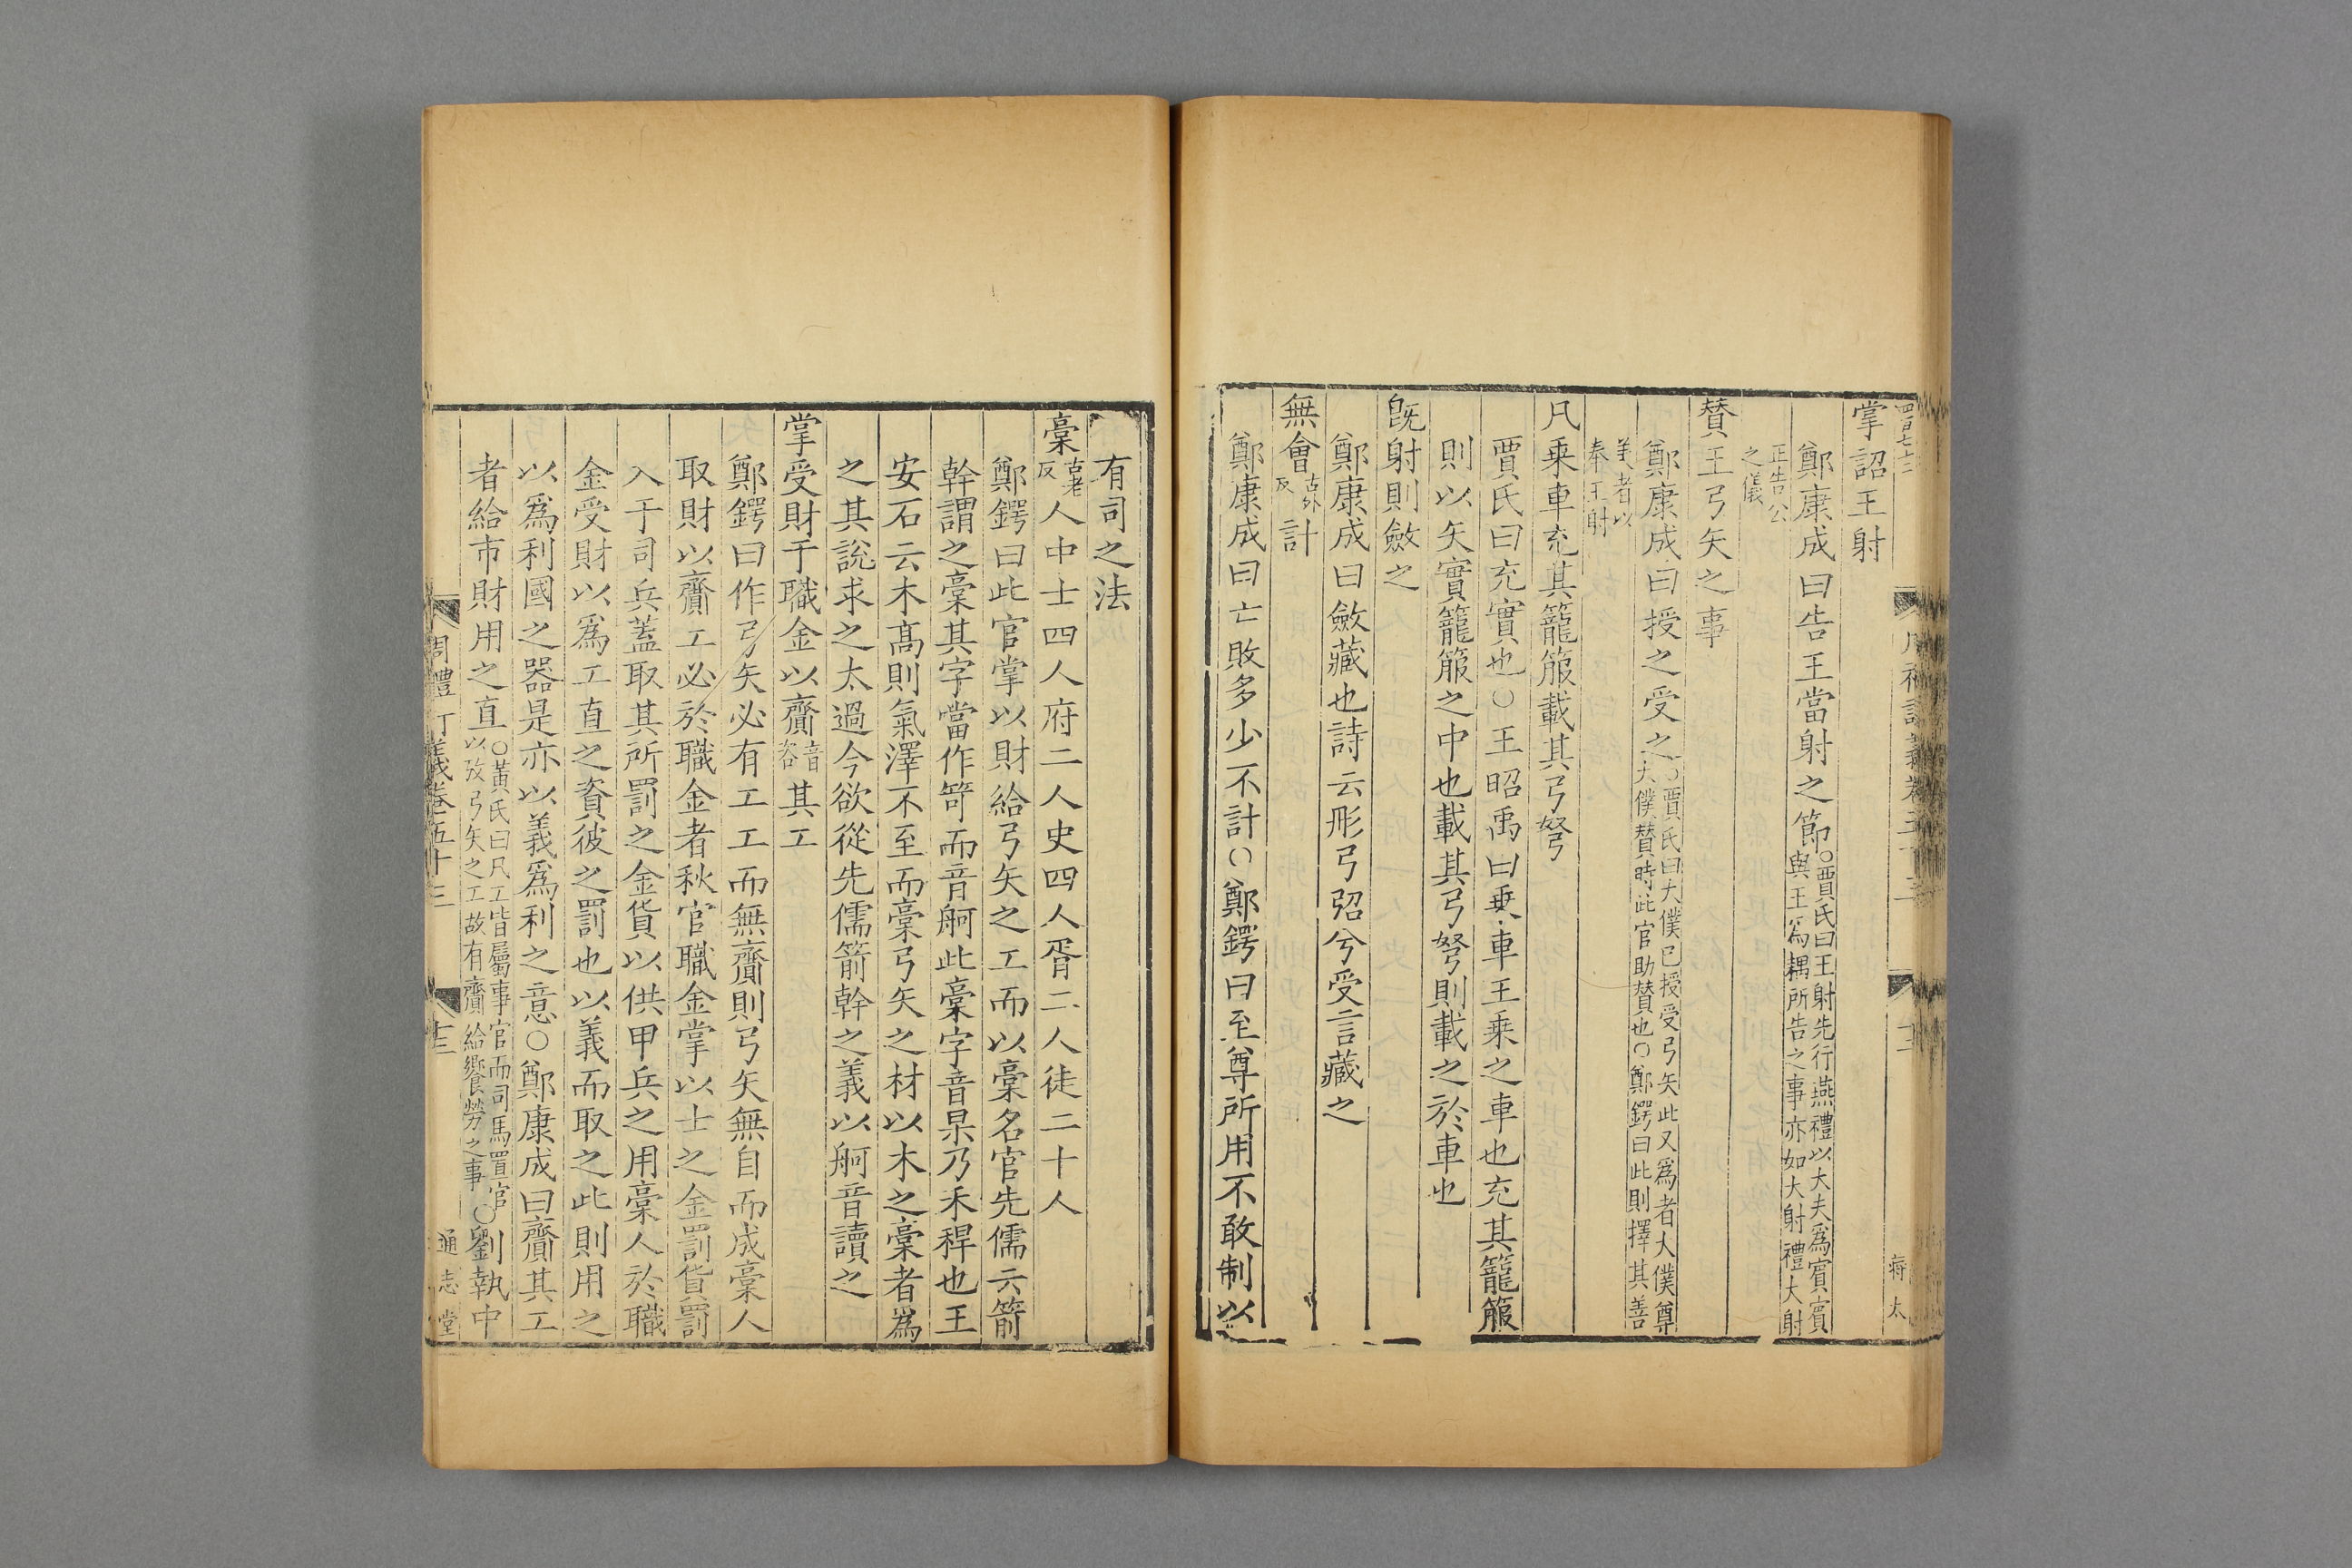 掌詔王射
鄭康成曰告王當射之節○賈氏曰王射先行燕禮以大夫爲賓賓
與王爲耦所告之事亦如大射禮大射
正告公
之儀
贊王弓矢之事
鄭康成曰授之受之○賈氏曰大僕已授受弓矢此又爲者大僕尊
大僕贊時此官助贊也○鄭鍔曰此則擇其善
美者以
奉王射
凡乗車充其籠箙載其弓弩
賈氏曰充實也○王昭禹曰乗車王乗之車也充其籠箙
則以矢實籠箙之中也載其弓弩則載之於車也
既射則斂之
鄭康成曰斂藏也詩云彤弓弨兮受言藏之
無會古外
反計
鄭康成曰亡敗多少不計○鄭鍔曰至尊所用不敢制以
有司之法
稾古老
反人中士四人府二人史四人胥二人徒二十人
鄭鍔曰此官掌以財給弓矢之工而以稾名官先儒云箭
幹謂之稾其字當作笴而音舸此稾字音杲乃禾稈也王
安石云木高則氣澤不至而稾弓矢之材以木之稾者爲
之其說求之太過今欲從先儒箭幹之義以舸音讀之
掌受財于職金以齎音
咨其工
鄭鍔曰作弓矢必有工工而無齎則弓矢無自而成稾人
取財以齎工必於職金者秋官職金掌以士之金罰貨罰
入于司兵蓋取其所罰之金貨以供甲兵之用稾人於職
金受財以爲工直之資彼之罰也以義而取之此則用之
以爲利國之器是亦以義爲利之意○鄭康成曰齎其工
者給市財用之直○黃氏曰凡工皆屬事官而司馬置官
以攷弓矢之工故有齎給饗勞之事○劉執中
周禮訂義卷五十三
十三
通志堂